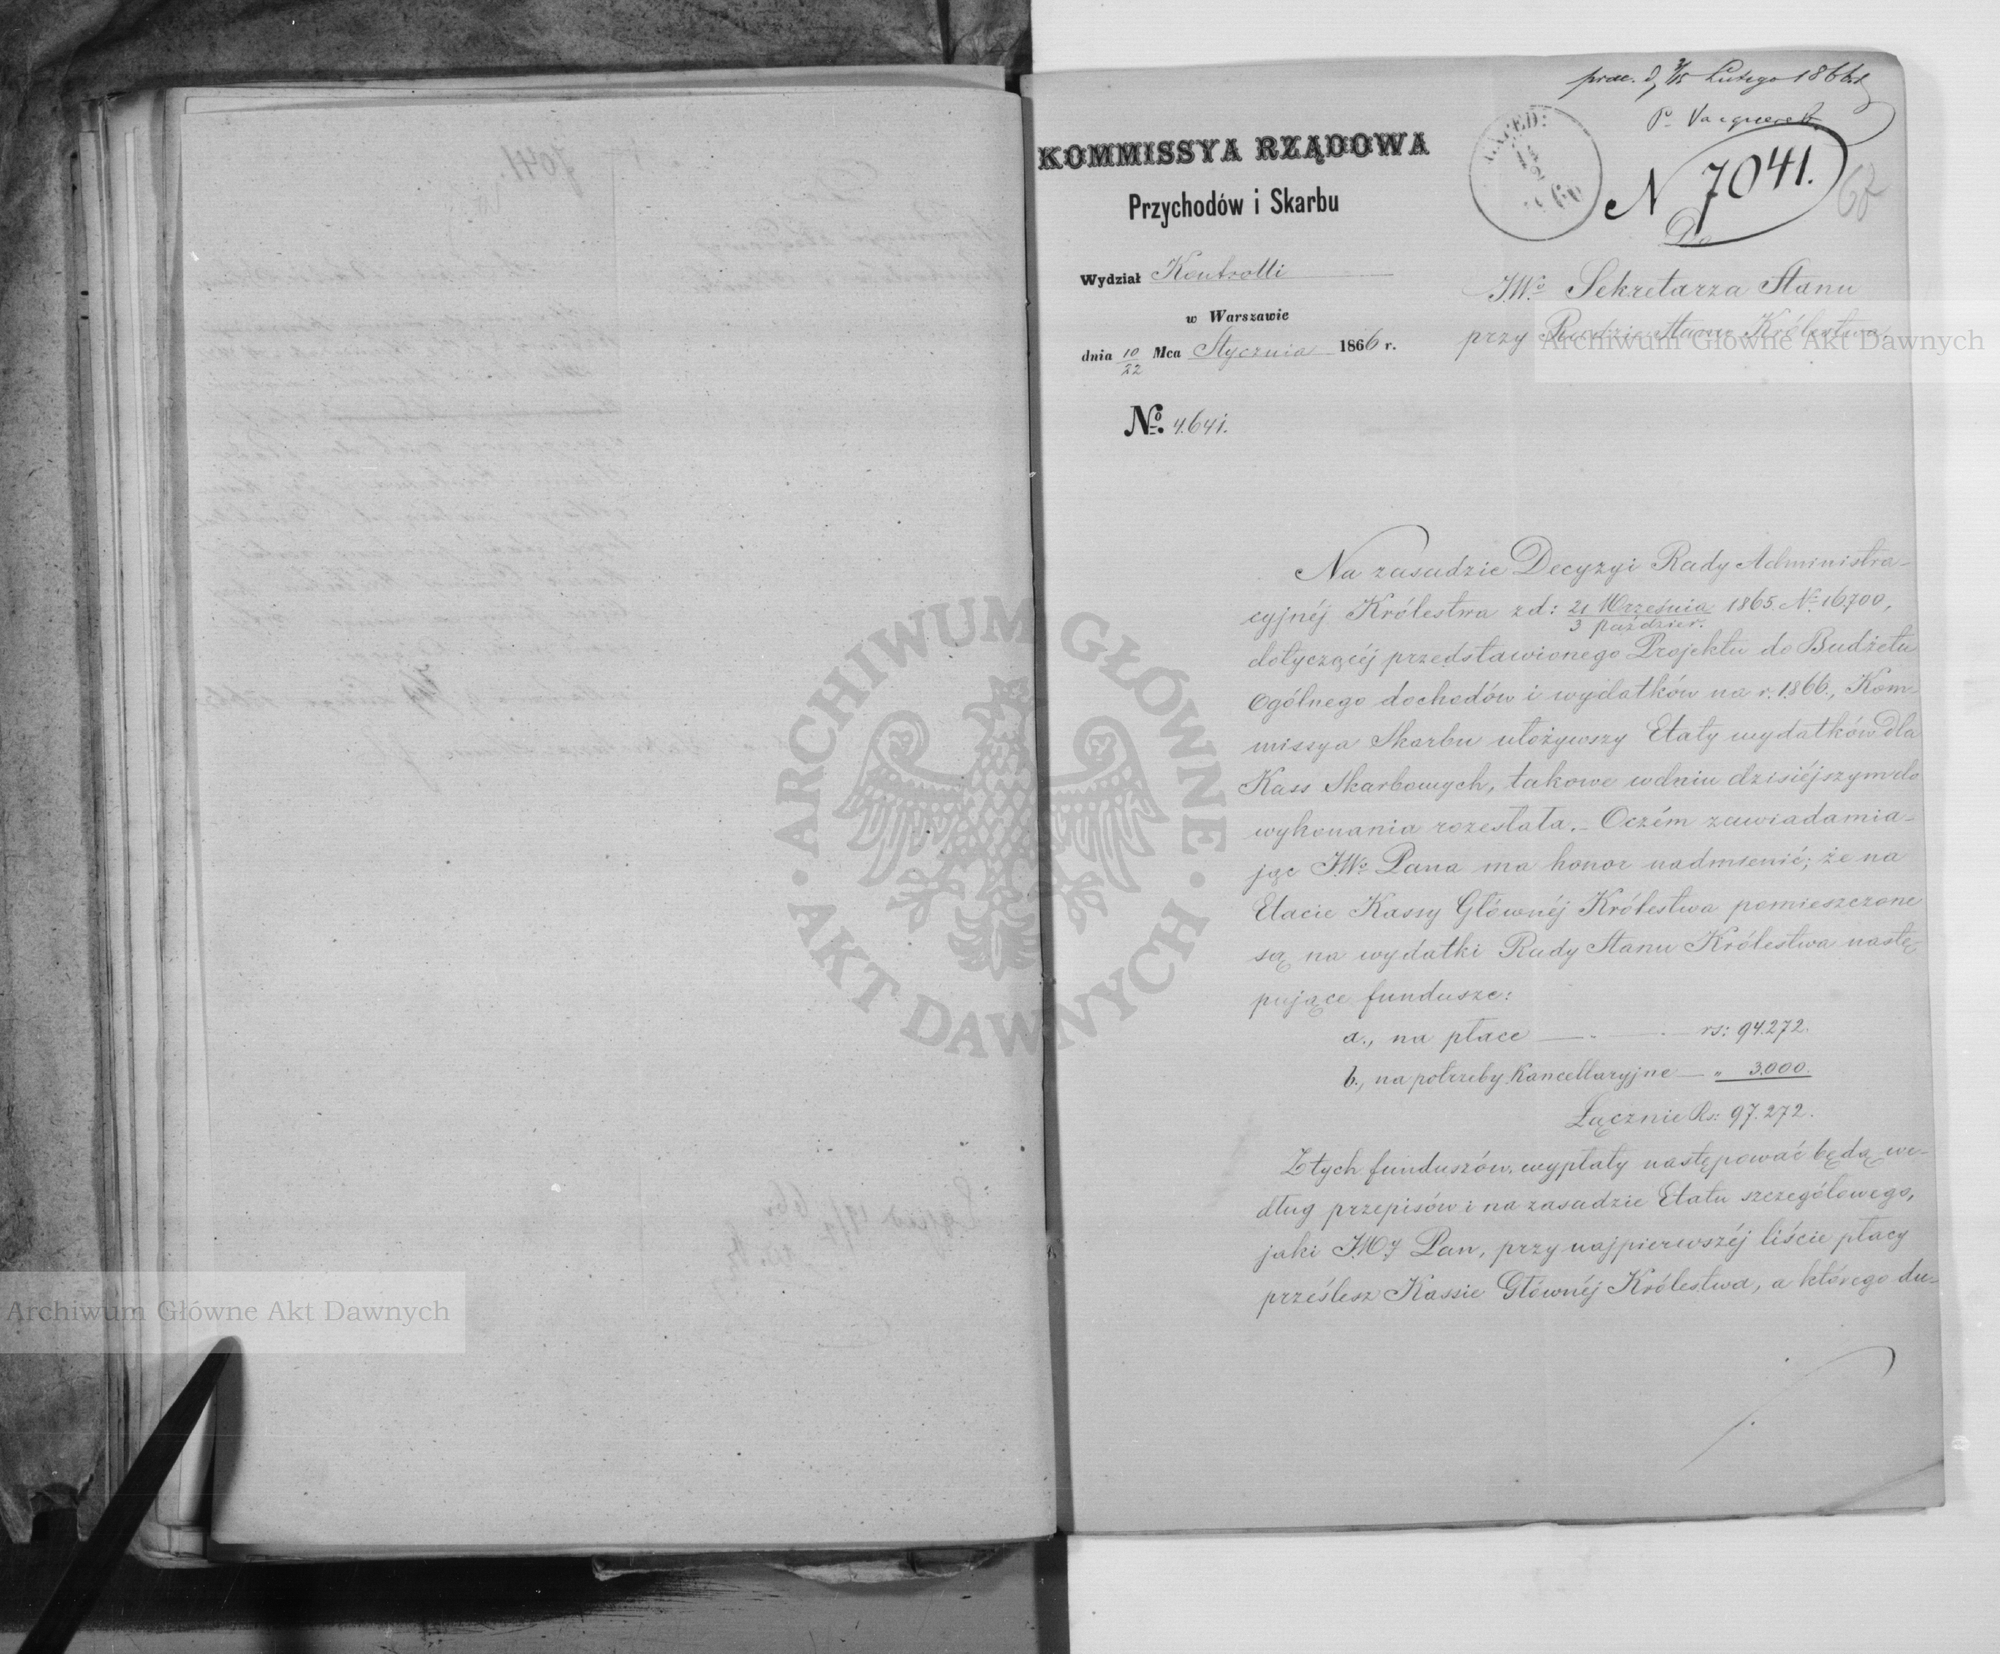 praes. d. 3/15 Lutego 1866 r.
KOMMISSYA RZĄDOWA
Przychodów i Skarbu
N 7041.
68
Wydział Kontrolli
w Warszawie
dnia 10/22 Mca Stycznia 1866 r.
No. 4.641.
Do
JW.o Sekretarza Stanu
przy Radzie Stanu Królestwa
Na zasadzie Decyzyi Rady Administra-
cyjnéj Królestwa z d: 21 Września / 3 paździer. 1865 No 16700,
dotyczącéj przedstawionego Projektu do Budżetu
Ogólnego dochodów i wydatków na r. 1866., Kom-
missya Skarbu ułożywszy Etaty wydatków dla
Kass Skarbowych, takowe w dniu dzisiéjszym do
wykonania rozesłała. – O czém zawiadamia-
jąc JWo Pana ma honor nadmienić; że na
Etacie Kassy Głównéj Królestwa pomieszczone
są na wydatki Rady Stanu Królestwa nastę-
pujące fundusze:
a., na płace — rs: 94.272.
b., na potrzeby Kancellaryjne — „ 3.000.
Łącznie Rs: 97.272.
Z tych funduszów, wypłaty następować będą we-
dług przepisów i na zasadzie Etatu szczegółowego,
jaki JWy Pan, przy najpierwszéj liście płacy
prześlesz Kassie Głównéj Królestwa, a którego du-
ARCHIWUM GŁÓWNE AKT DAWNYCH
Archiwum Główne Akt Dawnych
Archiwum Główne Akt Dawnych